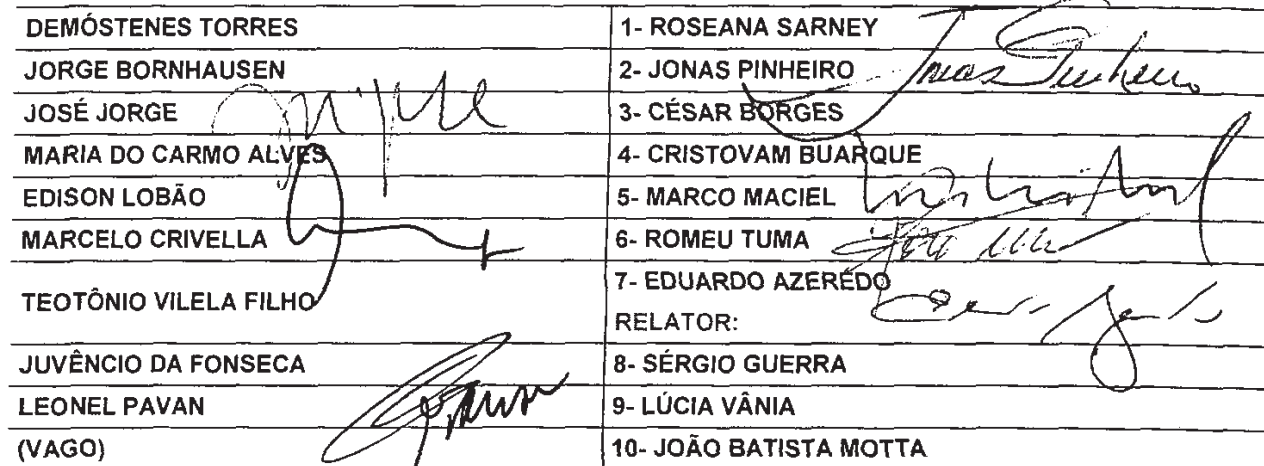 DEMÓSTENES TORRES 1- ROSEANA SARNEY
JORGE BORNHAUSEN 2- JONAS PINHEIRO Jonas Pinheiro
JOSÉ JORGE 3- CÉSAR BORGES
MARIA DO CARMO ALVES 4- CRISTOVAM BUARQUE
EDISON LOBÃO 5- MARCO MACIEL
MARCELO CRIVELLA 6- ROMEU TUMA
TEOTÔNIO VILELA FILHO 7- EDUARDO AZEREDO
RELATOR:
JUVÊNCIO DA FONSECA 8- SÉRGIO GUERRA
LEONEL PAVAN 9- LÚCIA VÂNIA
(VAGO) 10- JOÃO BATISTA MOTTA